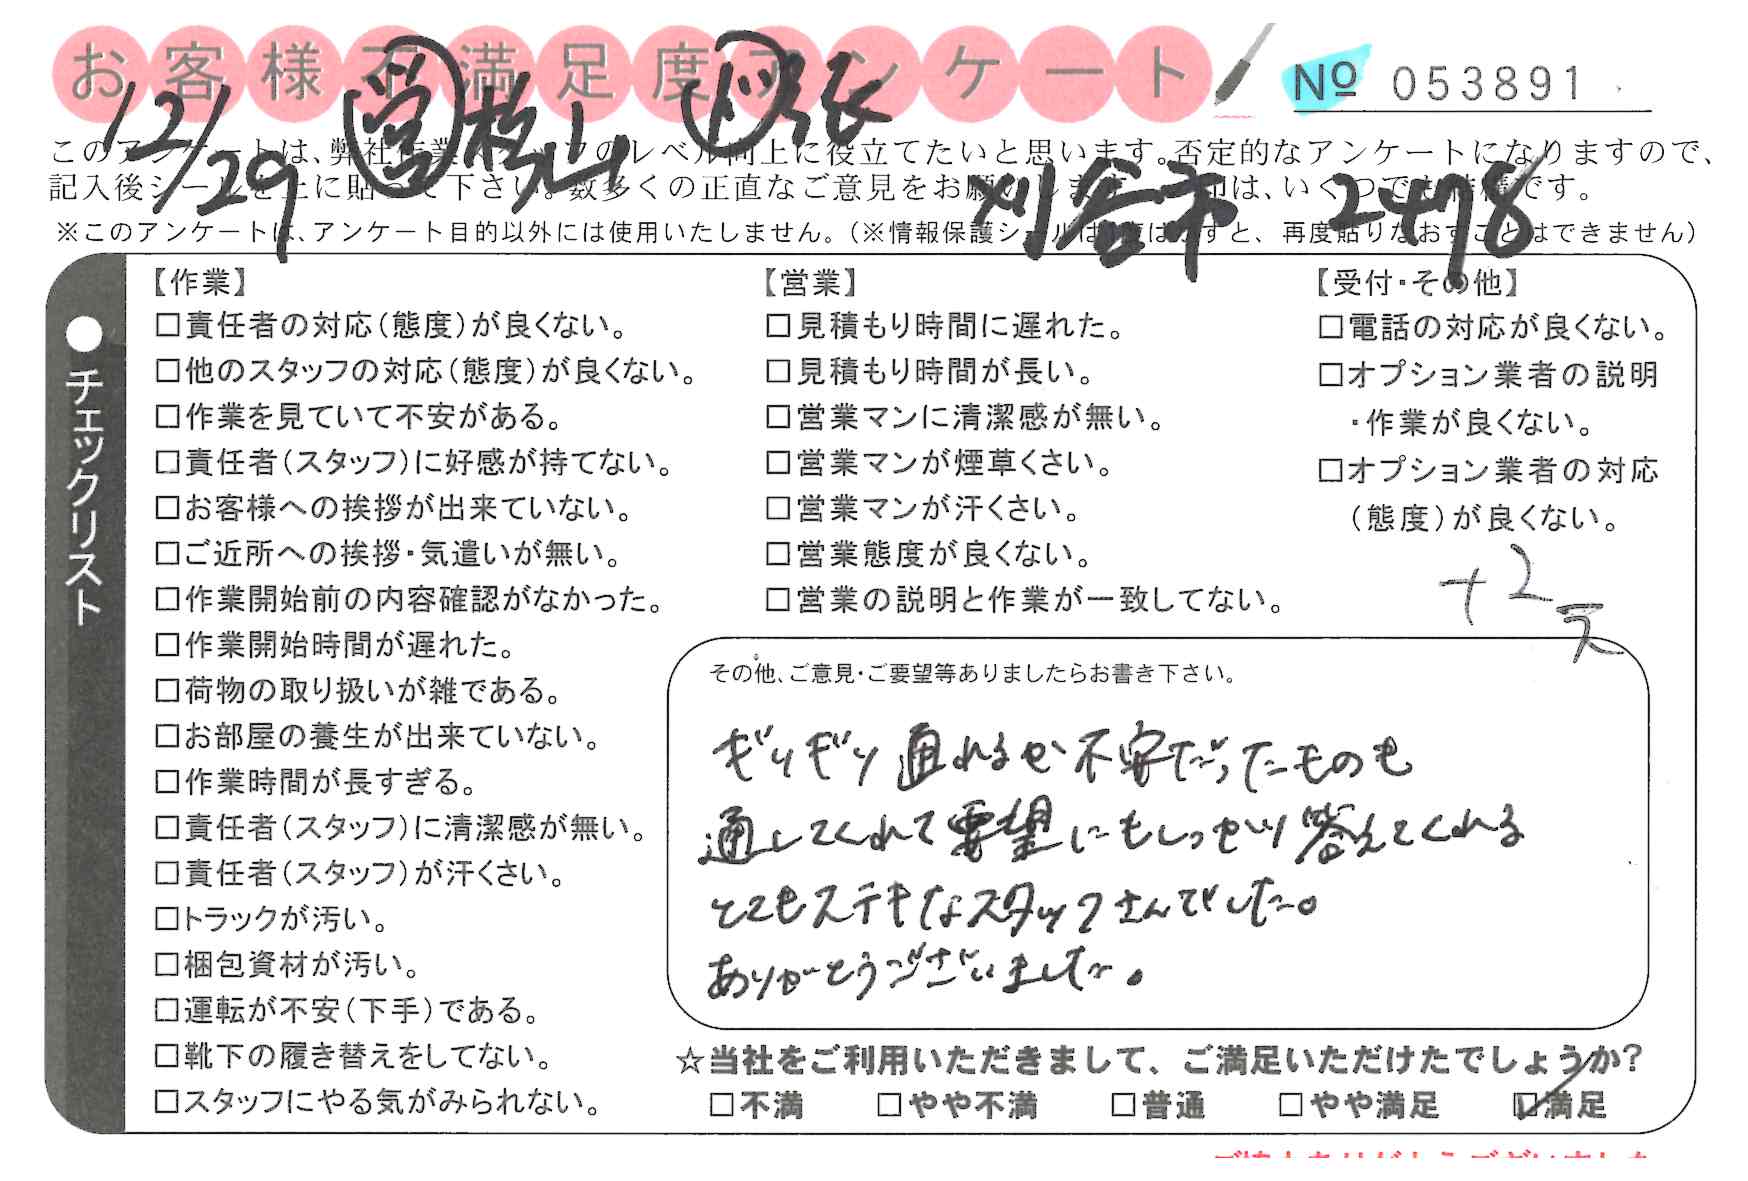 お客様不満足度アンケート
Nº 053891
12/29 営 杉山 ト 張
このアンケートは、弊社作業スタッフのレベル向上に役立てたいと思います。否定的なアンケートになりますので、
記入後シールを上に貼って下さい。数多くの正直なご意見をお願いします。 印は、いくつでも結構です。
刈谷市 2478
※このアンケートは、アンケート目的以外には使用いたしません。（※情報保護シールは1度はがすと、再度貼りなおすことはできません）
●チェックリスト
【作業】
□責任者の対応（態度）が良くない。
□他のスタッフの対応（態度）が良くない。
□作業を見ていて不安がある。
□責任者（スタッフ）に好感が持てない。
□お客様への挨拶が出来ていない。
□ご近所への挨拶・気遣いが無い。
□作業開始前の内容確認がなかった。
□作業開始時間が遅れた。
□荷物の取り扱いが雑である。
□お部屋の養生が出来ていない。
□作業時間が長すぎる。
□責任者（スタッフ）に清潔感が無い。
□責任者（スタッフ）が汗くさい。
□トラックが汚い。
□梱包資材が汚い。
□運転が不安（下手）である。
□靴下の履き替えをしてない。
□スタッフにやる気がみられない。
【営業】
□見積もり時間に遅れた。
□見積もり時間が長い。
□営業マンに清潔感が無い。
□営業マンが煙草くさい。
□営業マンが汗くさい。
□営業態度が良くない。
□営業の説明と作業が一致してない。
【受付・その他】
□電話の対応が良くない。
□オプション業者の説明
・作業が良くない。
□オプション業者の対応
（態度）が良くない。
+2
ス
その他、ご意見・ご要望等ありましたらお書き下さい。
ギリギリ通れるか不安だったものも
通してくれて要望にもしっかり答えてくれる
とてもステキなスタッフさんでした。
ありがとうございました。
☆当社をご利用いただきまして、ご満足いただけたでしょうか?
□不満 □やや不満 □普通 □やや満足 ☑満足